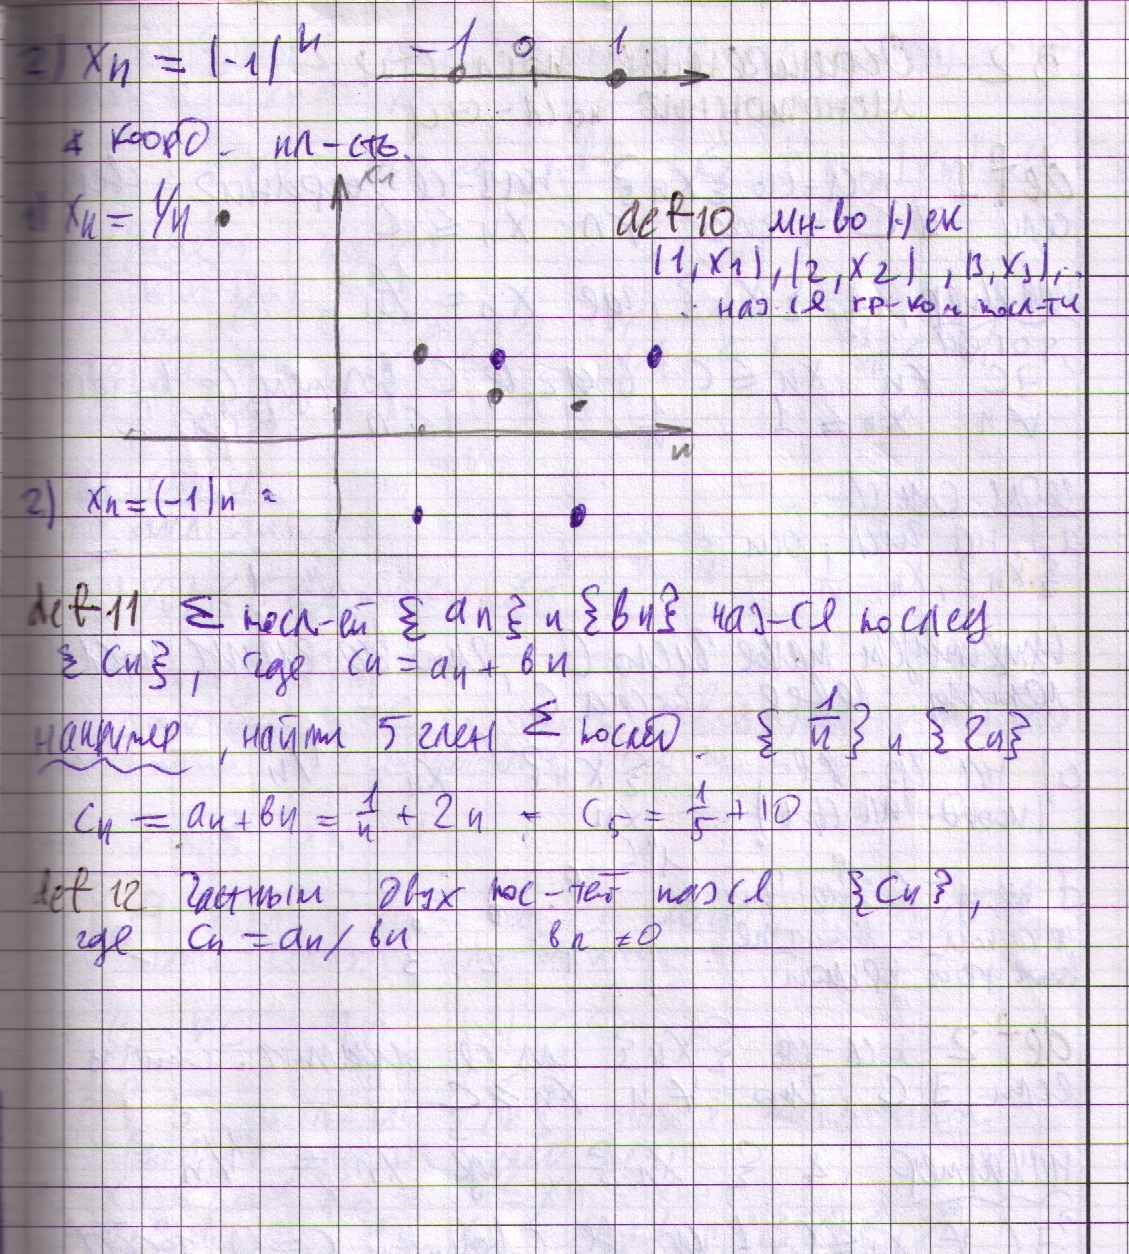 2) xn = (-1)^n -1 0 1
* коорд. пл-сть.
xn
1) xn = 1/n
def 10 мн-во точек
(1, x1), (2, x2), (3, x3), ..
наз-ся гр-ком посл-ти
n
2) xn = (-1)n
def 11 Σ посл-ей {an} и {bn} наз-ся послед
{Cn}, где Cn = an + bn
например, найти 5 член Σ послед. {1/n} и {2n}
Cn = an + bn = 1/n + 2n C5 = 1/5 + 10
def 12 Частным двух пос-тей назся {Cn},
где Cn = an / bn bn ≠ 0